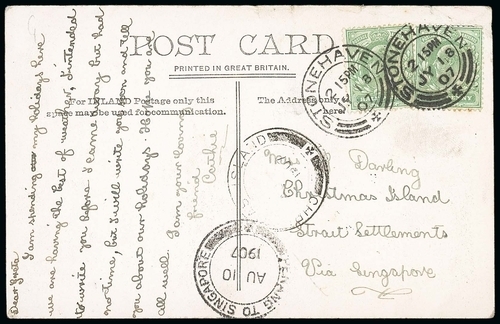 POST CARD
PRINTED IN GREAT BRITAIN.
For INLAND Postage only this
space may be used for communication.
The Address only
here
STONEHAVEN
2 15PM
JY 18
07
STONEHAVEN
2 15PM
JY 18
07
Dear Greta
I am spending my holidays here
we are having the best of weather, I intended
to write you before I came away but had
no time, but I will write you soon and tell
you about our holidays. Hope you are
all well. I am your loving
friend Cathie
Darling
Christmas Island
Strait Settlements
Via Singapore
TO SINGAPORE
AU 10
1907